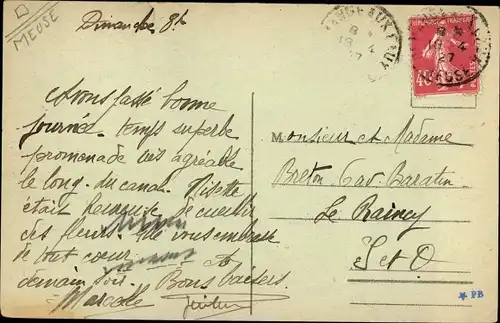 MEUSE
Dimanche 8h
Avons passé bonne
journée. temps superbe
promenade très agréable
le long du canal. Ninette
était heureuse de cueillir
des fleurs. Me vous embrasse
de tout cœur
demain soir. Bons baisers.
Marcelle
8 4
18 4
27
REPUBLIQUE FRANÇAISE
40
MEUSE
Monsieur et Madame
Breton. Gav. Baratin
Le Raincy
S et O
* PB